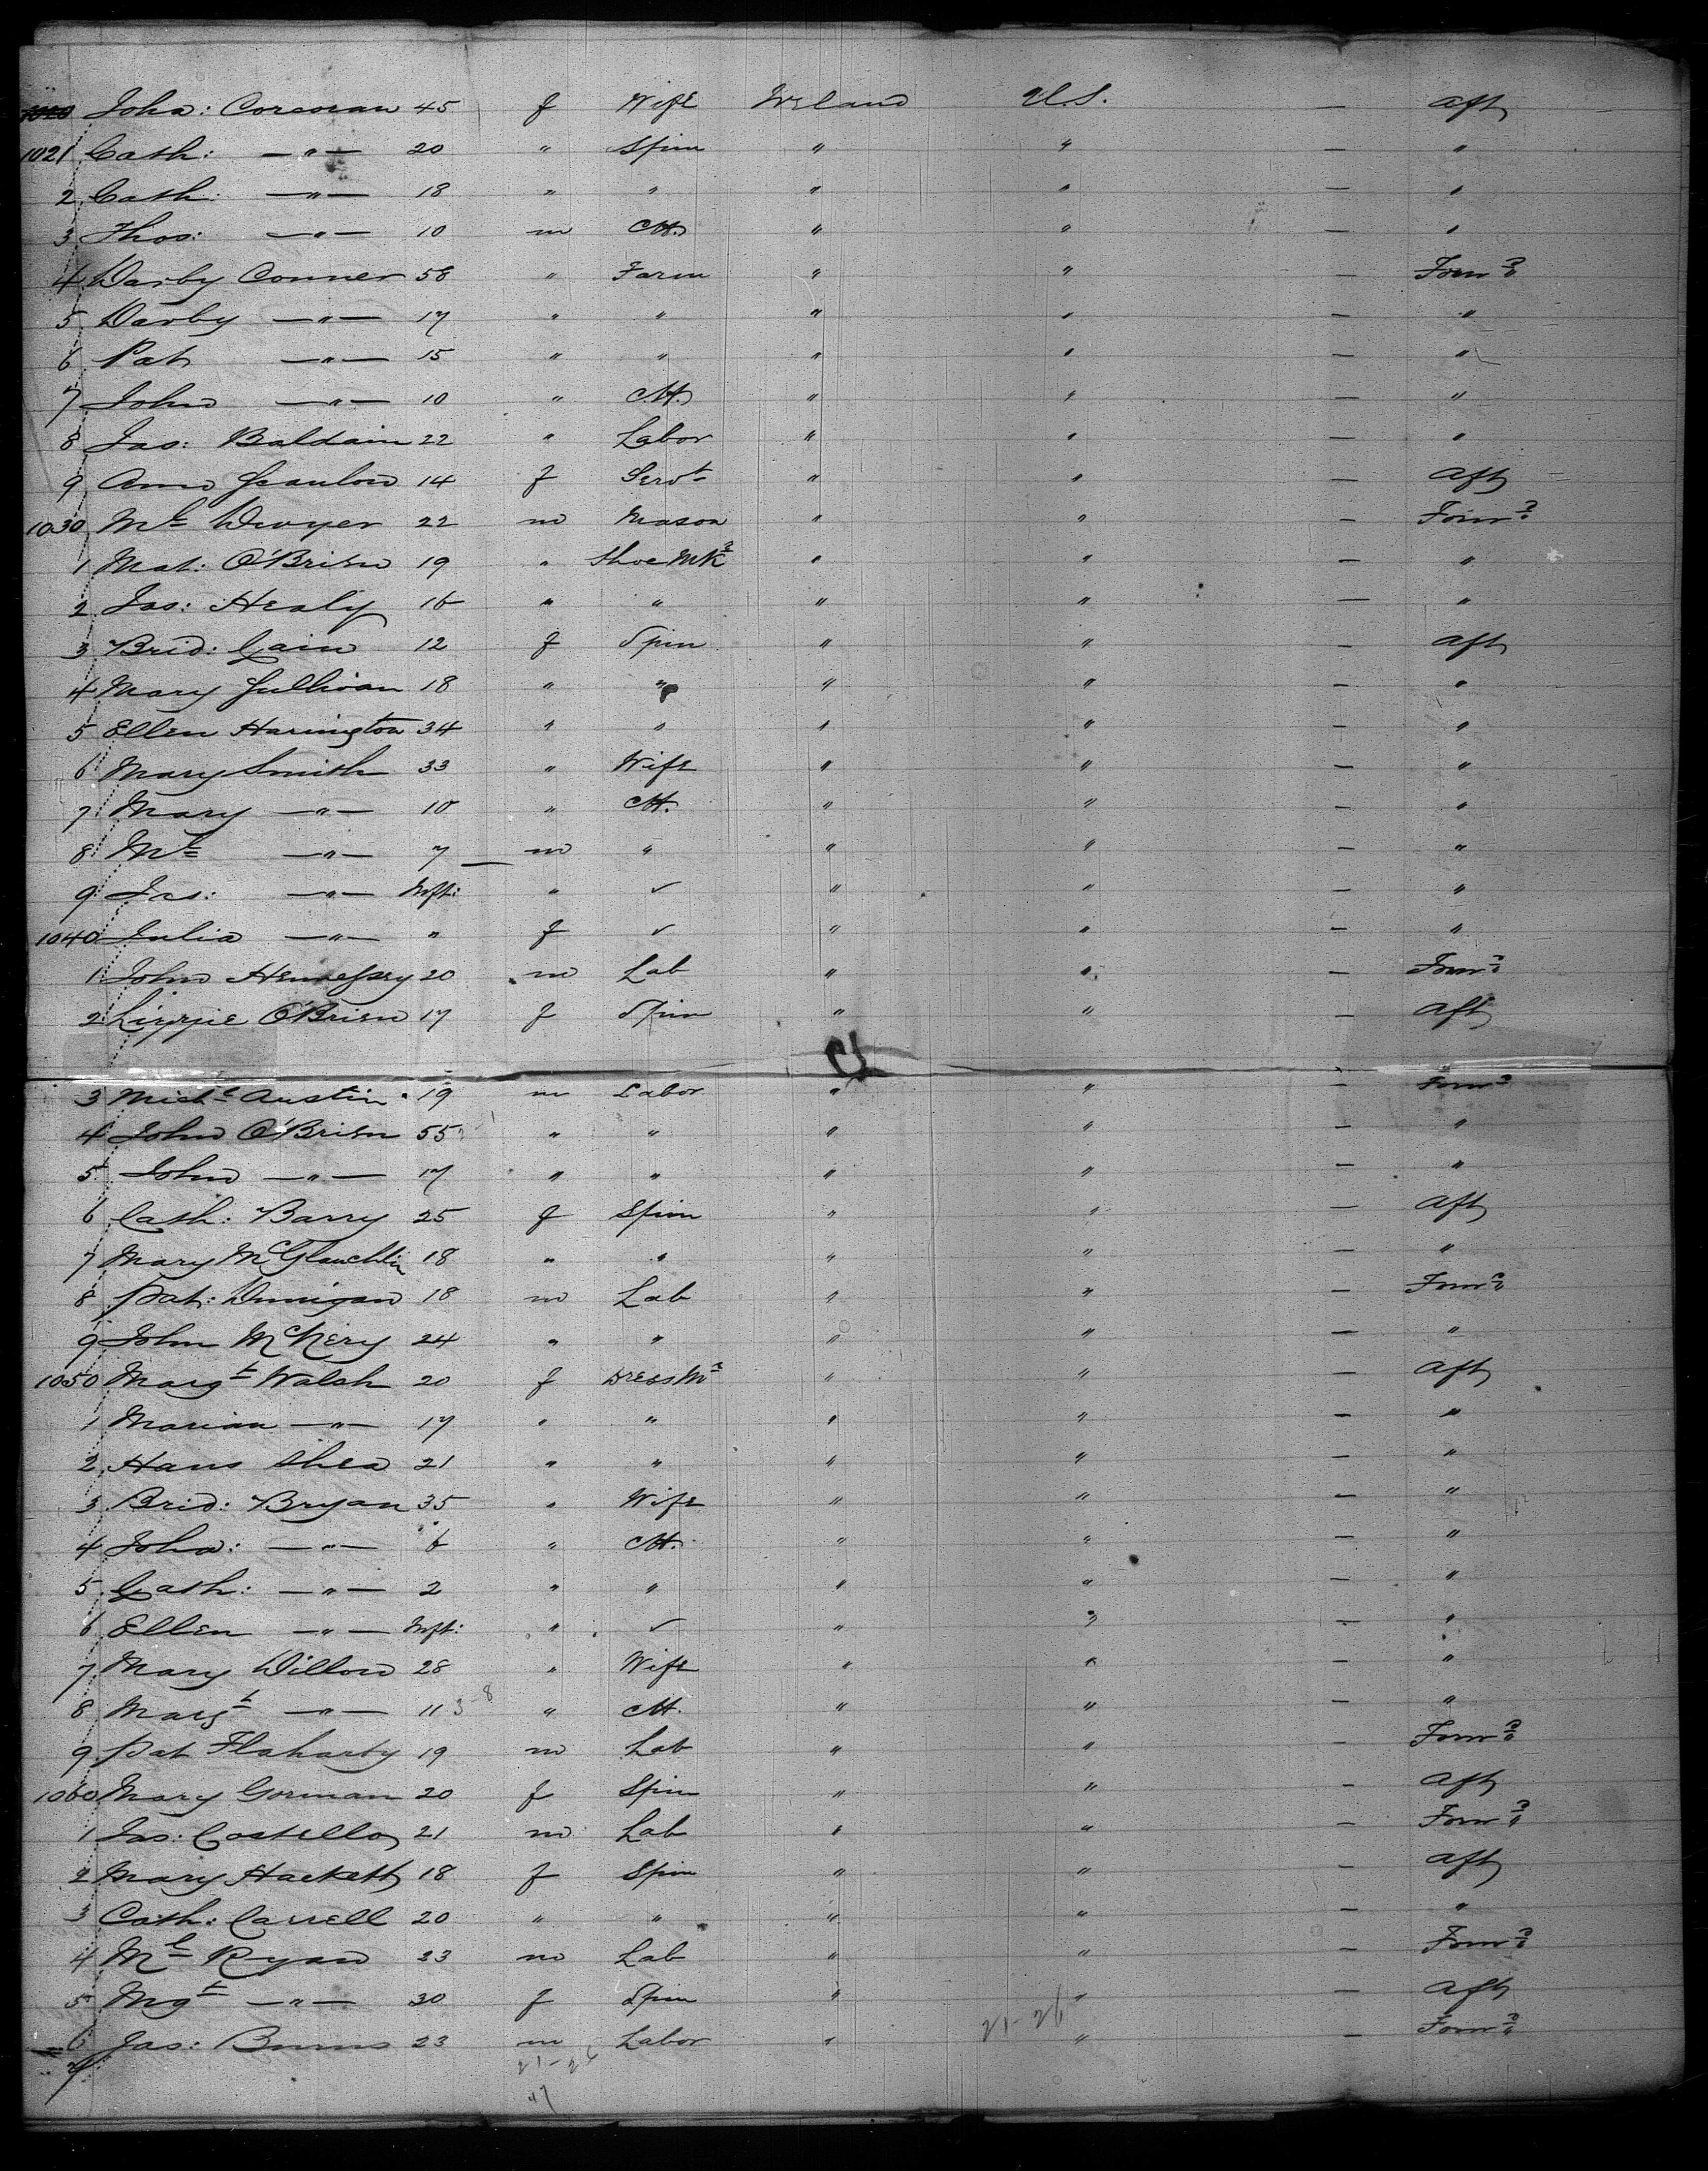 1020 Joha: Corcoran 45 f Wife Ireland U.S. — Aft
1021 Cath: —"— 20 " Spin " " — "
2 Cath: —"— 18 " " " " — "
3 Thos: —"— 10 m Ch. " " — "
4 Darby Conner 58 " Farm " " — Forwd
5 Darby —"— 17 " " " " — "
6 Pat —"— 15 " " " " — "
7 John —"— 10 " Ch. " " — "
8 Jas: Baldain 22 " Labor " " — "
9 Ann Scanlon 14 f Servt " " — Aft
1030 Ml Dwyer 22 m Mason " " — Forwd
1 Mat: O'Brien 19 " Shoe Mkr " " — "
2 Jas: Healy 16 " " " " — "
3 Brid: Cain 12 f Spin " " — Aft
4 Mary Sullivan 18 " " " " — "
5 Ellen Harington 34 " " " " — "
6 Mary Smith 33 " Wife " " — "
7 Mary —"— 10 " Ch. " " — "
8 Ml —"— 7 m " " " — "
9 Jas: —"— Inft: " ✓ " " — "
1040 Julia —"— " f ✓ " " — "
1 John Hennessey 20 m Lab " " — Forwd
2 Lizzie O'Brien 17 f Spin " " — Aft
3 Michl Austin 19 m Labor " " — Forwd
4 John O'Brien 55 " " " " — "
5 John —"— 17 " " " " — "
6 Cath: Barry 25 f Spin " " — Aft
7 Mary McGlauchlin 18 " " " " — "
8 Pat: Dunigan 18 m Lab " " — Forwd
9 John McNery 24 " " " " — "
1050 Margt Walsh 20 f Dress Mr " " — Aft
1 Marian —"— 17 " " " " — "
2 Hans Shea 21 " " " " — "
3 Brid: Bryan 35 " Wife " " — "
4 Joha: —"— 6 " Ch. " " — "
5 Cath: —"— 2 " " " " — "
6 Ellen —"— Inft: " ✓ " " — "
7 Mary Dillon 28 " Wife " " — "
8 Margt —"— 11 3-8 " Ch. " " — "
9 Pat Flaharty 19 m Lab " " — Forwd
1060 Mary Gorman 20 f Spin " " — Aft
1 Jas: Costello 21 m Lab " " — Forwd
2 Mary Hackett 18 f Spin " " — Aft
3 Cath: Carrell 20 " " " " — "
4 Ml Ryan 23 m Lab " " — Forwd
5 Mgt —"— 30 f Spin " " — Aft
6 Jas: Burns 23 m Labor " 21-26 " — Forwd
7 21-26
47